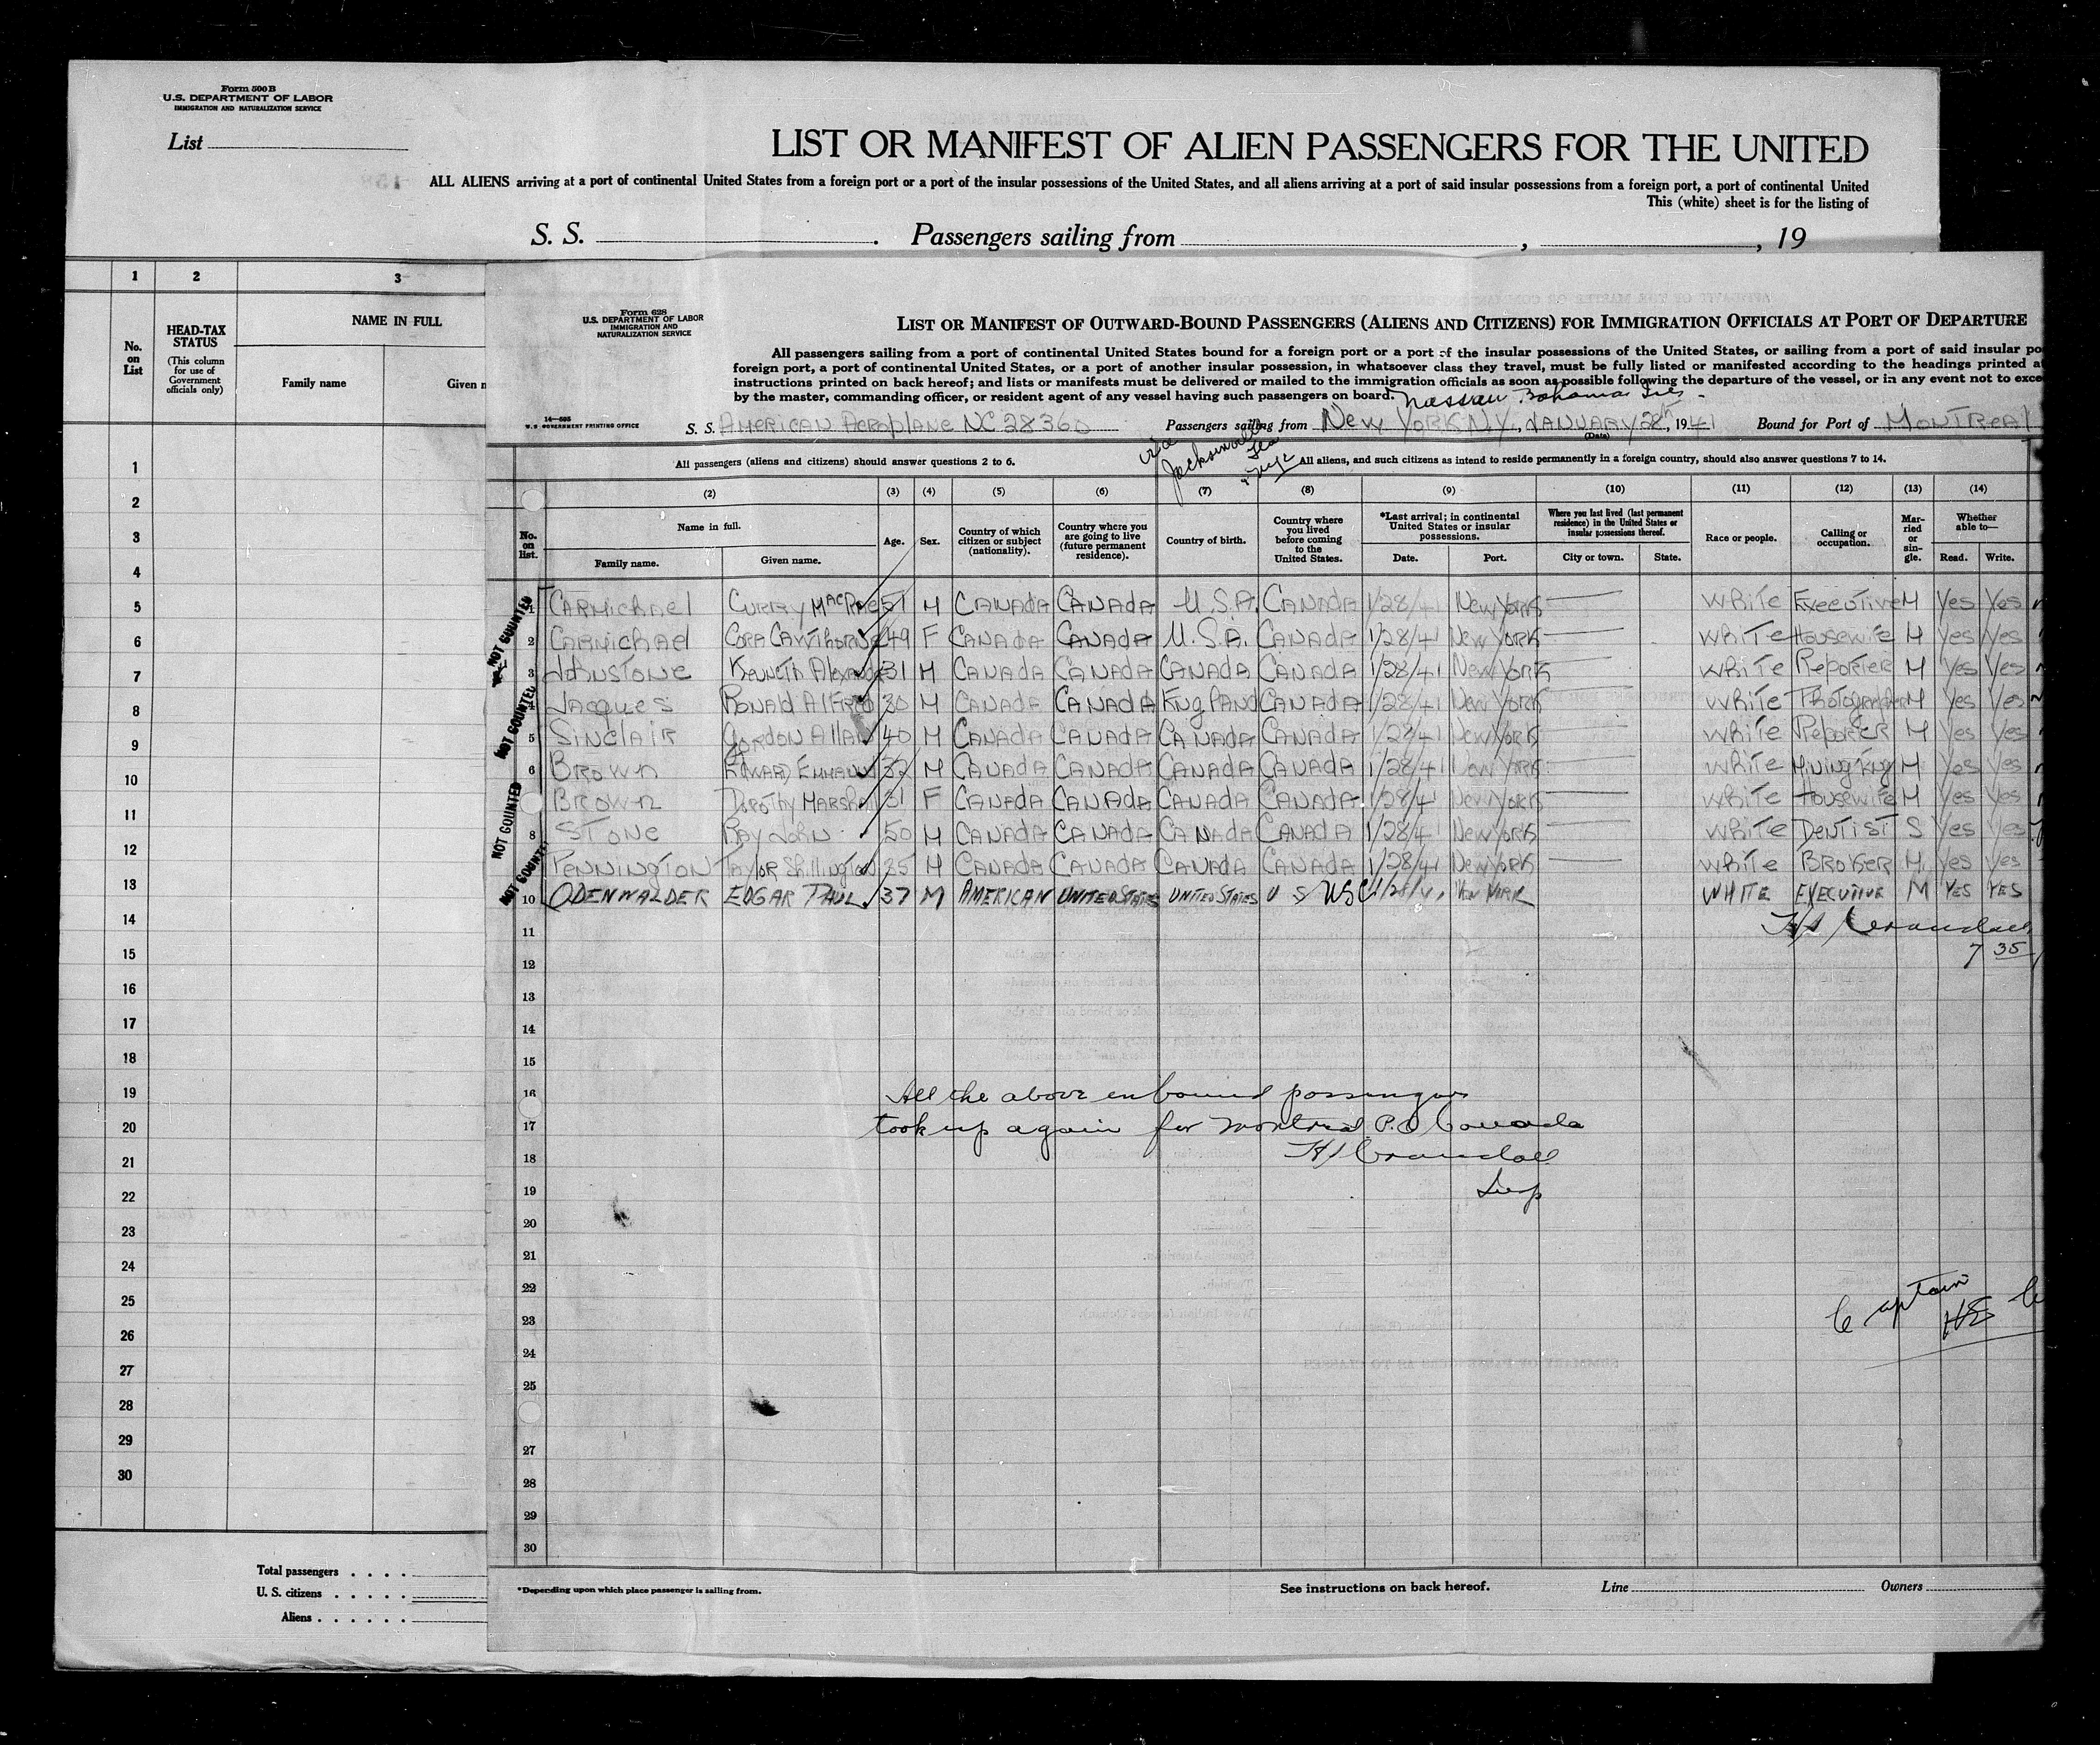 Form 500 B
U.S. DEPARTMENT OF LABOR
IMMIGRATION AND NATURALIZATION SERVICE
List
LIST OR MANIFEST OF ALIEN PASSENGERS FOR THE UNITED
ALL ALIENS arriving at a port of continental United States from a foreign port or a port of the insular possessions of the United States, and all aliens arriving at a port of said insular possessions from a foreign port, a port of continental United
This (white) sheet is for the listing of
S. S. . Passengers sailing from , , 19
1 2 3
No. on List
HEAD-TAX STATUS
(This column for use of Government officials only)
NAME IN FULL
Family name Given n
1
2
3
4
5
6
7
8
9
10
11
12
13
14
15
16
17
18
19
20
21
22
23
24
25
26
27
28
29
30
Total passengers . . . .
U. S. citizens . . . . .
Aliens . . . . . .
Form 628
U.S. DEPARTMENT OF LABOR
IMMIGRATION AND
NATURALIZATION SERVICE
LIST OR MANIFEST OF OUTWARD-BOUND PASSENGERS (ALIENS AND CITIZENS) FOR IMMIGRATION OFFICIALS AT PORT OF DEPARTURE
All passengers sailing from a port of continental United States bound for a foreign port or a port of the insular possessions of the United States, or sailing from a port of said insular po
foreign port, a port of continental United States, or a port of another insular possession, in whatsoever class they travel, must be fully listed or manifested according to the headings printed a
instructions printed on back hereof; and lists or manifests must be delivered or mailed to the immigration officials as soon as possible following the departure of the vessel, or in any event not to exce
by the master, commanding officer, or resident agent of any vessel having such passengers on board.
Nassau Bahama Isls -
14—505
U. S. GOVERNMENT PRINTING OFFICE
S. S. AMERICAN AEROPLANE NC 28360 Passengers sailing from NEW YORK N.Y., JANUARY 28th, 1941 Bound for Port of MONTREAL
(Date)
via Jacksonville Fla
All passengers (aliens and citizens) should answer questions 2 to 6.
All aliens, and such citizens as intend to reside permanently in a foreign country, should also answer questions 7 to 14.
(2) (3) (4) (5) (6) (7) (8) (9) (10) (11) (12) (13) (14)
No. on list.
Name in full.
Family name. Given name.
Age.
Sex.
Country of which citizen or subject (nationality).
Country where you are going to live (future permanent residence).
Country of birth.
Country where you lived before coming to the United States.
*Last arrival; in continental United States or insular possessions.
Date. Port.
Where you last lived (last permanent residence) in the United States or insular possessions thereof.
City or town. State.
Race or people.
Calling or occupation.
Married or single.
Whether able to—
Read. Write.
NOT COUNTED
NOT COUNTED
NOT COUNTED
NOT COUNTE
1 CARMICHAEL CURRY MACRAE 51 M CANADA CANADA U.S.A. CANADA 1/28/41 NEW YORK WHITE EXECUTIVE M YES YES
2 CARMICHAEL CORA CAWTHORNE 49 F CANADA CANADA U.S.A. CANADA 1/28/41 NEW YORK WHITE HOUSEWIFE M YES YES
3 JOHNSTONE KENNETH 31 M CANADA CANADA CANADA CANADA 1/28/41 NEW YORK WHITE REPORTER M YES YES
4 JACQUES RONALD ALFRED 30 M CANADA CANADA ENGLAND CANADA 1/28/41 NEW YORK WHITE PHOTOGRAPHER M YES YES
5 SINCLAIR GORDON ALLAN 40 M CANADA CANADA CANADA CANADA 1/28/41 NEW YORK WHITE REPORTER M YES YES
6 BROWN EDWARD 32 M CANADA CANADA CANADA CANADA 1/28/41 NEW YORK WHITE MINING ENG M YES YES
BROWN DOROTHY MARSHALL 31 F CANADA CANADA CANADA CANADA 1/28/41 NEW YORK WHITE HOUSEWIFE M YES YES
8 STONE RAY JOHN 50 M CANADA CANADA CANADA CANADA 1/28/41 NEW YORK WHITE DENTIST S YES YES
PENNINGTON TAYLOR SHILLINGTON 35 M CANADA CANADA CANADA CANADA 1/28/41 NEW YORK WHITE BROKER M YES YES
10 ODENWALDER EDGAR PAUL 37 M AMERICAN UNITED STATES UNITED STATES U S USC 1/28/41 NEW YORK WHITE EXECUTIVE M YES YES
11 HS Crandall
12 7 35
13
14
15
16 All the above inbound passengers
17 took up again for Montreal P.Q Canada
18 HS Crandall
19 Insp
20
21
22
23 Captain HS
24
25
27
28
29
30
*Depending upon which place passenger is sailing from.
See instructions on back hereof.
Line Owners